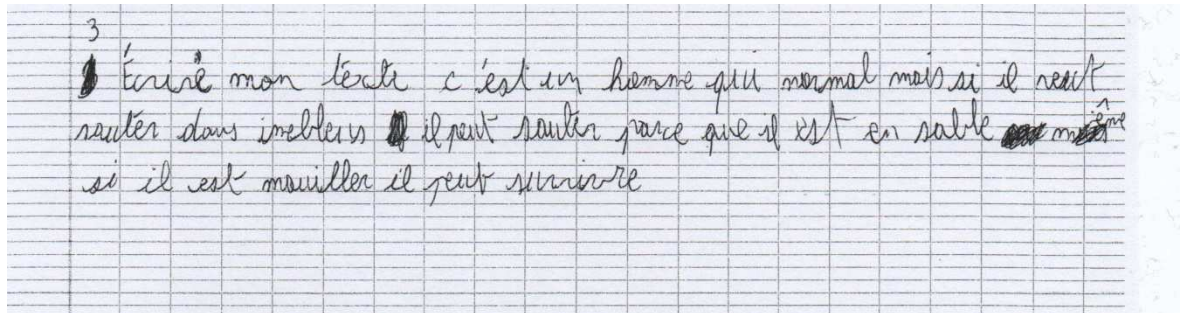 3
Écrire mon texte c'est un homme qui normal mais si il veut
sauter dans imebleus il peut sauter parce que il est en sable même
si il est mouiller il peut survivre